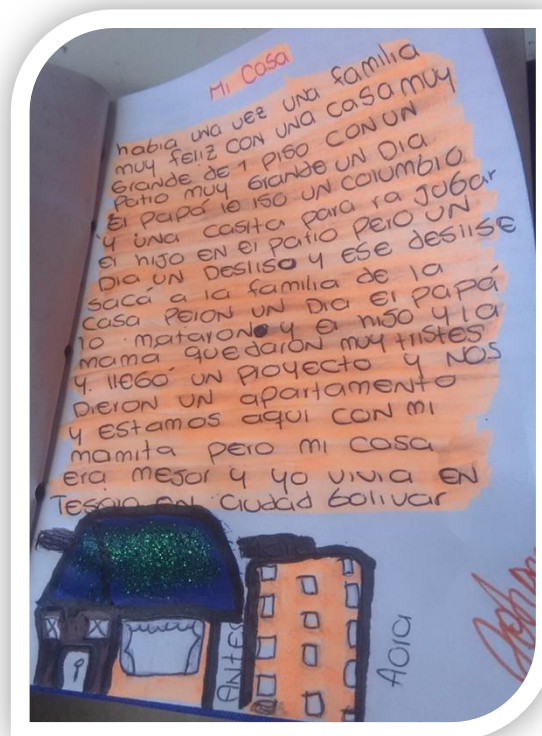 Mi Casa
habia una vez una familia
muy feliz con una casa muy
Grande de 1 piso con un
Patio muy Grande un Dia
El Papá le iso un columbio
y una casita para ra Jugar
el hijo en el patio pero un
Dia un Desliso y ese deslise
sacá a la familia de la
casa peron un Dia el papá
lo mataron y el hiso y la
mama quedaron muy tristes
y llegó un proyecto y nos
Dieron un apartamento
y estamos aqui con mi
mamita pero mi casa
era mejor y yo vivia en
en ciudad bolivar
Antes
Aora